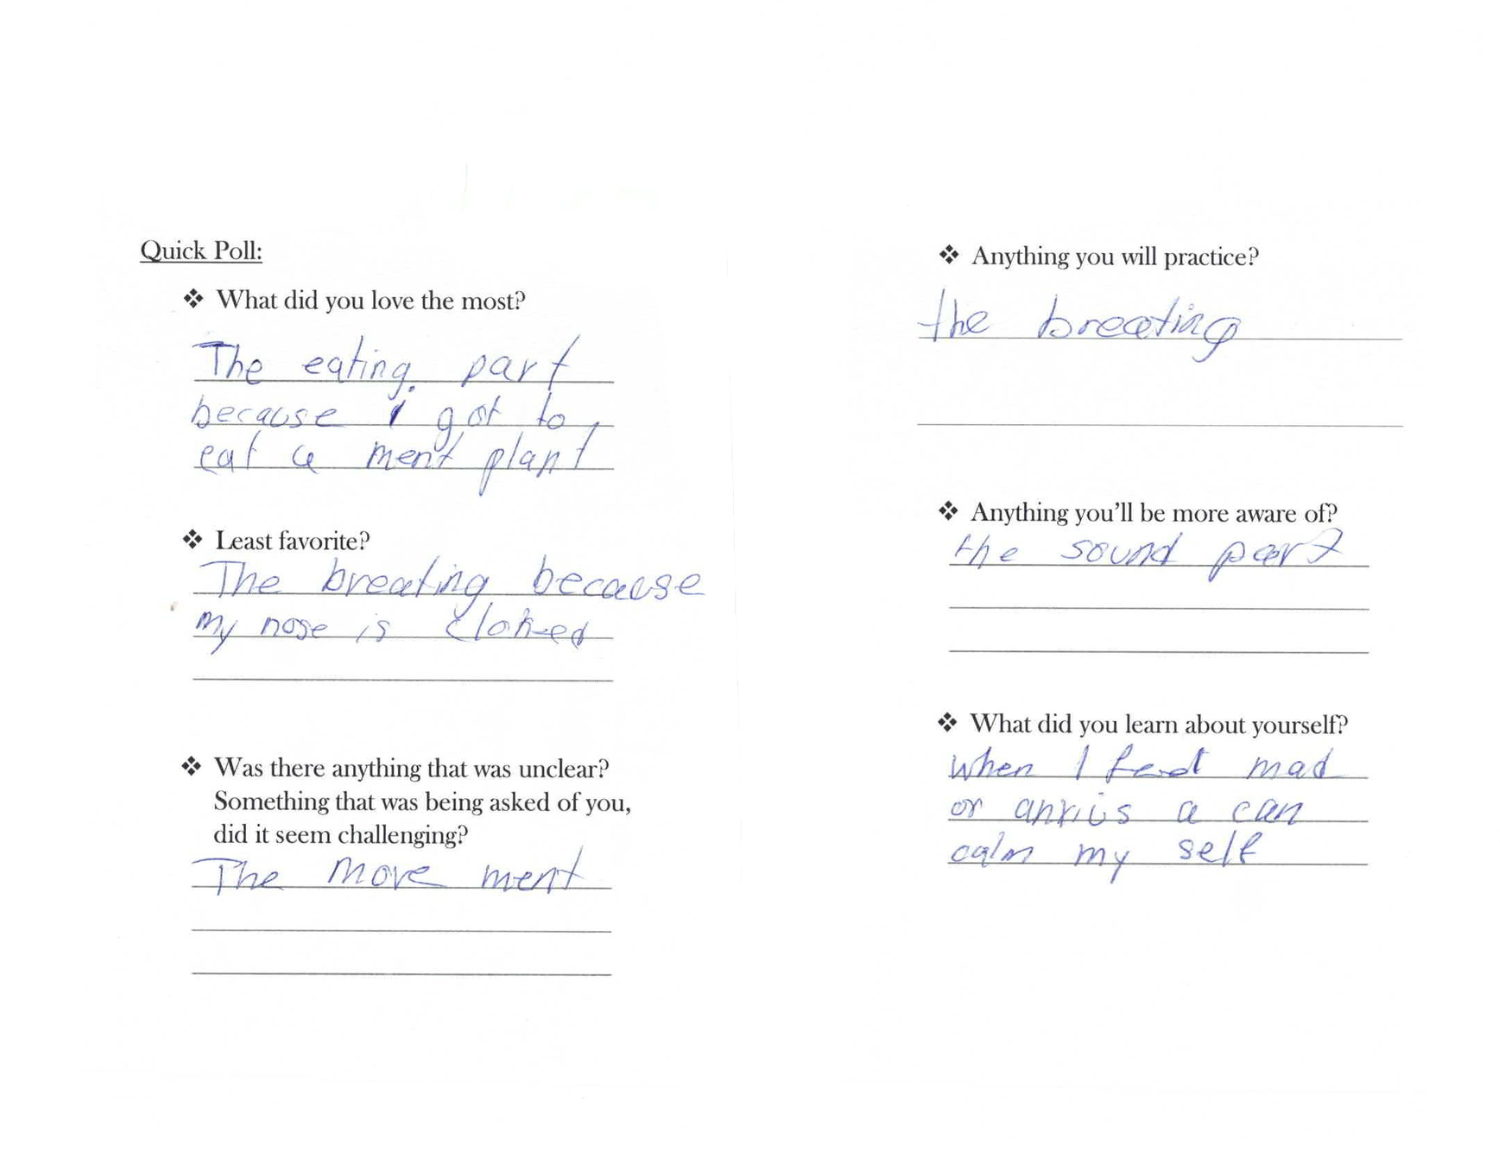 Quick Poll:
❖ What did you love the most?
The eating part
because i got to
eat a ment plant
❖ Least favorite?
The breating because
my nose is
❖ Was there anything that was unclear?
Something that was being asked of you,
did it seem challenging?
The move ment
❖ Anything you will practice?
the breating
❖ Anything you'll be more aware of?
the sound part
❖ What did you learn about yourself?
When I mad
or a can
calm my self